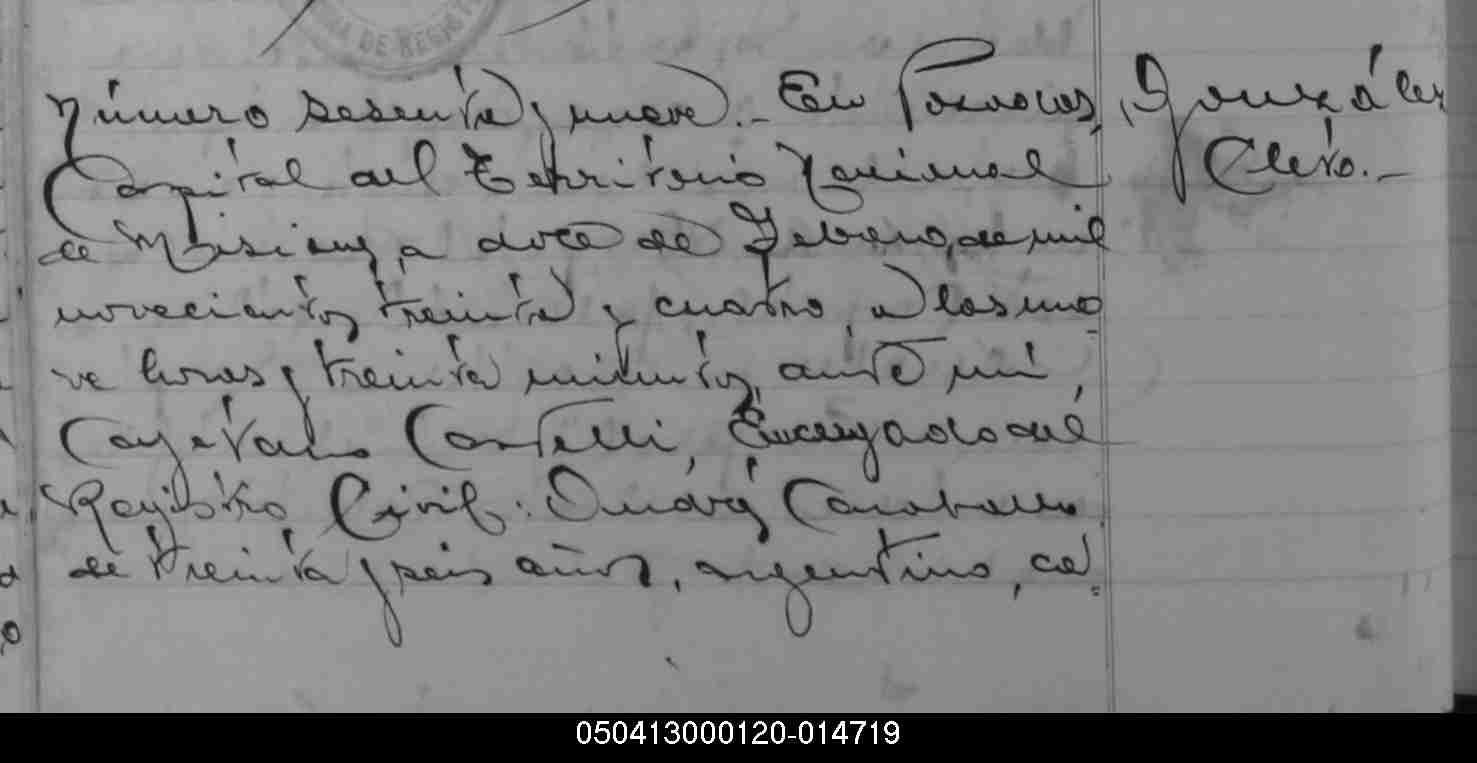 DE REGIST
Número sesenta y nueve.- En Posadas,
González
Capital del Territorio Nacional
Cleto.-
de Misiones, a doce de Febrero de mil
novecientos treinta y cuatro, a las nue
ve horas y treinta minutos, ante mí,
Cayetano Castelli, Encargado del
Registro Civil: Caraballo
de treinta y seis años, argentino, ca
050413000120-014719